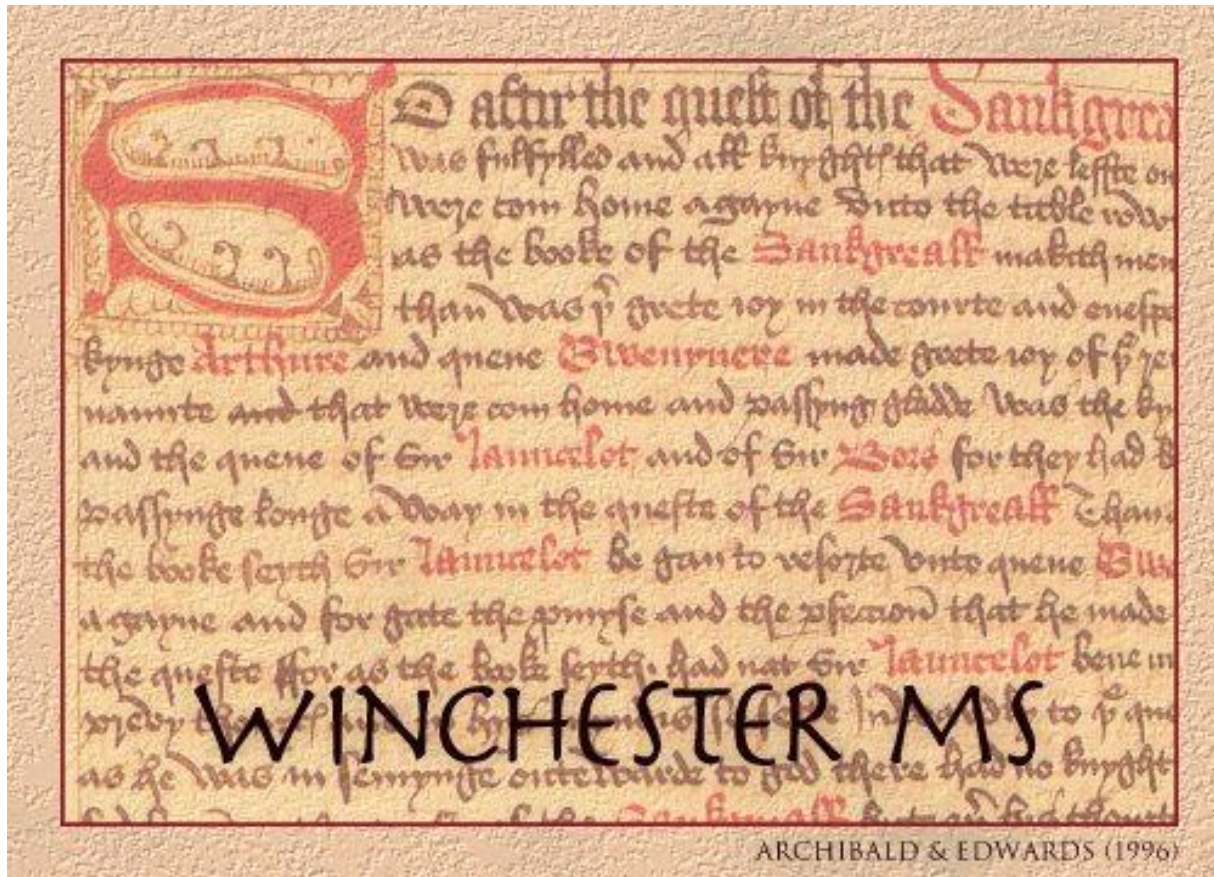 SO aftir the quest of the Sankgrea
was fulfylled and all knyghtes that were leffte on
were com home agayne vnto the table row
as the booke of the Sankgreall makith men
than was þe grete ioy in the courte and enespe
kynge Arthure and quene Gwenyuere made grete ioy of þe re
naunte and that were com home and passyng gladde was the ky
and the quene of sir launcelot and of sir Bors for they had b
passynge longe a way in the queste of the Sankgreall Than
the booke seyth Sir launcelot be gan to resorte vnto quene Gwe
agayne and for gate the pmyse and the pfeccion that he made
the queste ffor as the booke seyth had nat Sir launcelot bene in
prevy to þe que
as he was in semynge outewarde to god there had no knyght
Sankgreall
WINCHESTER MS
ARCHIBALD & EDWARDS (1996)